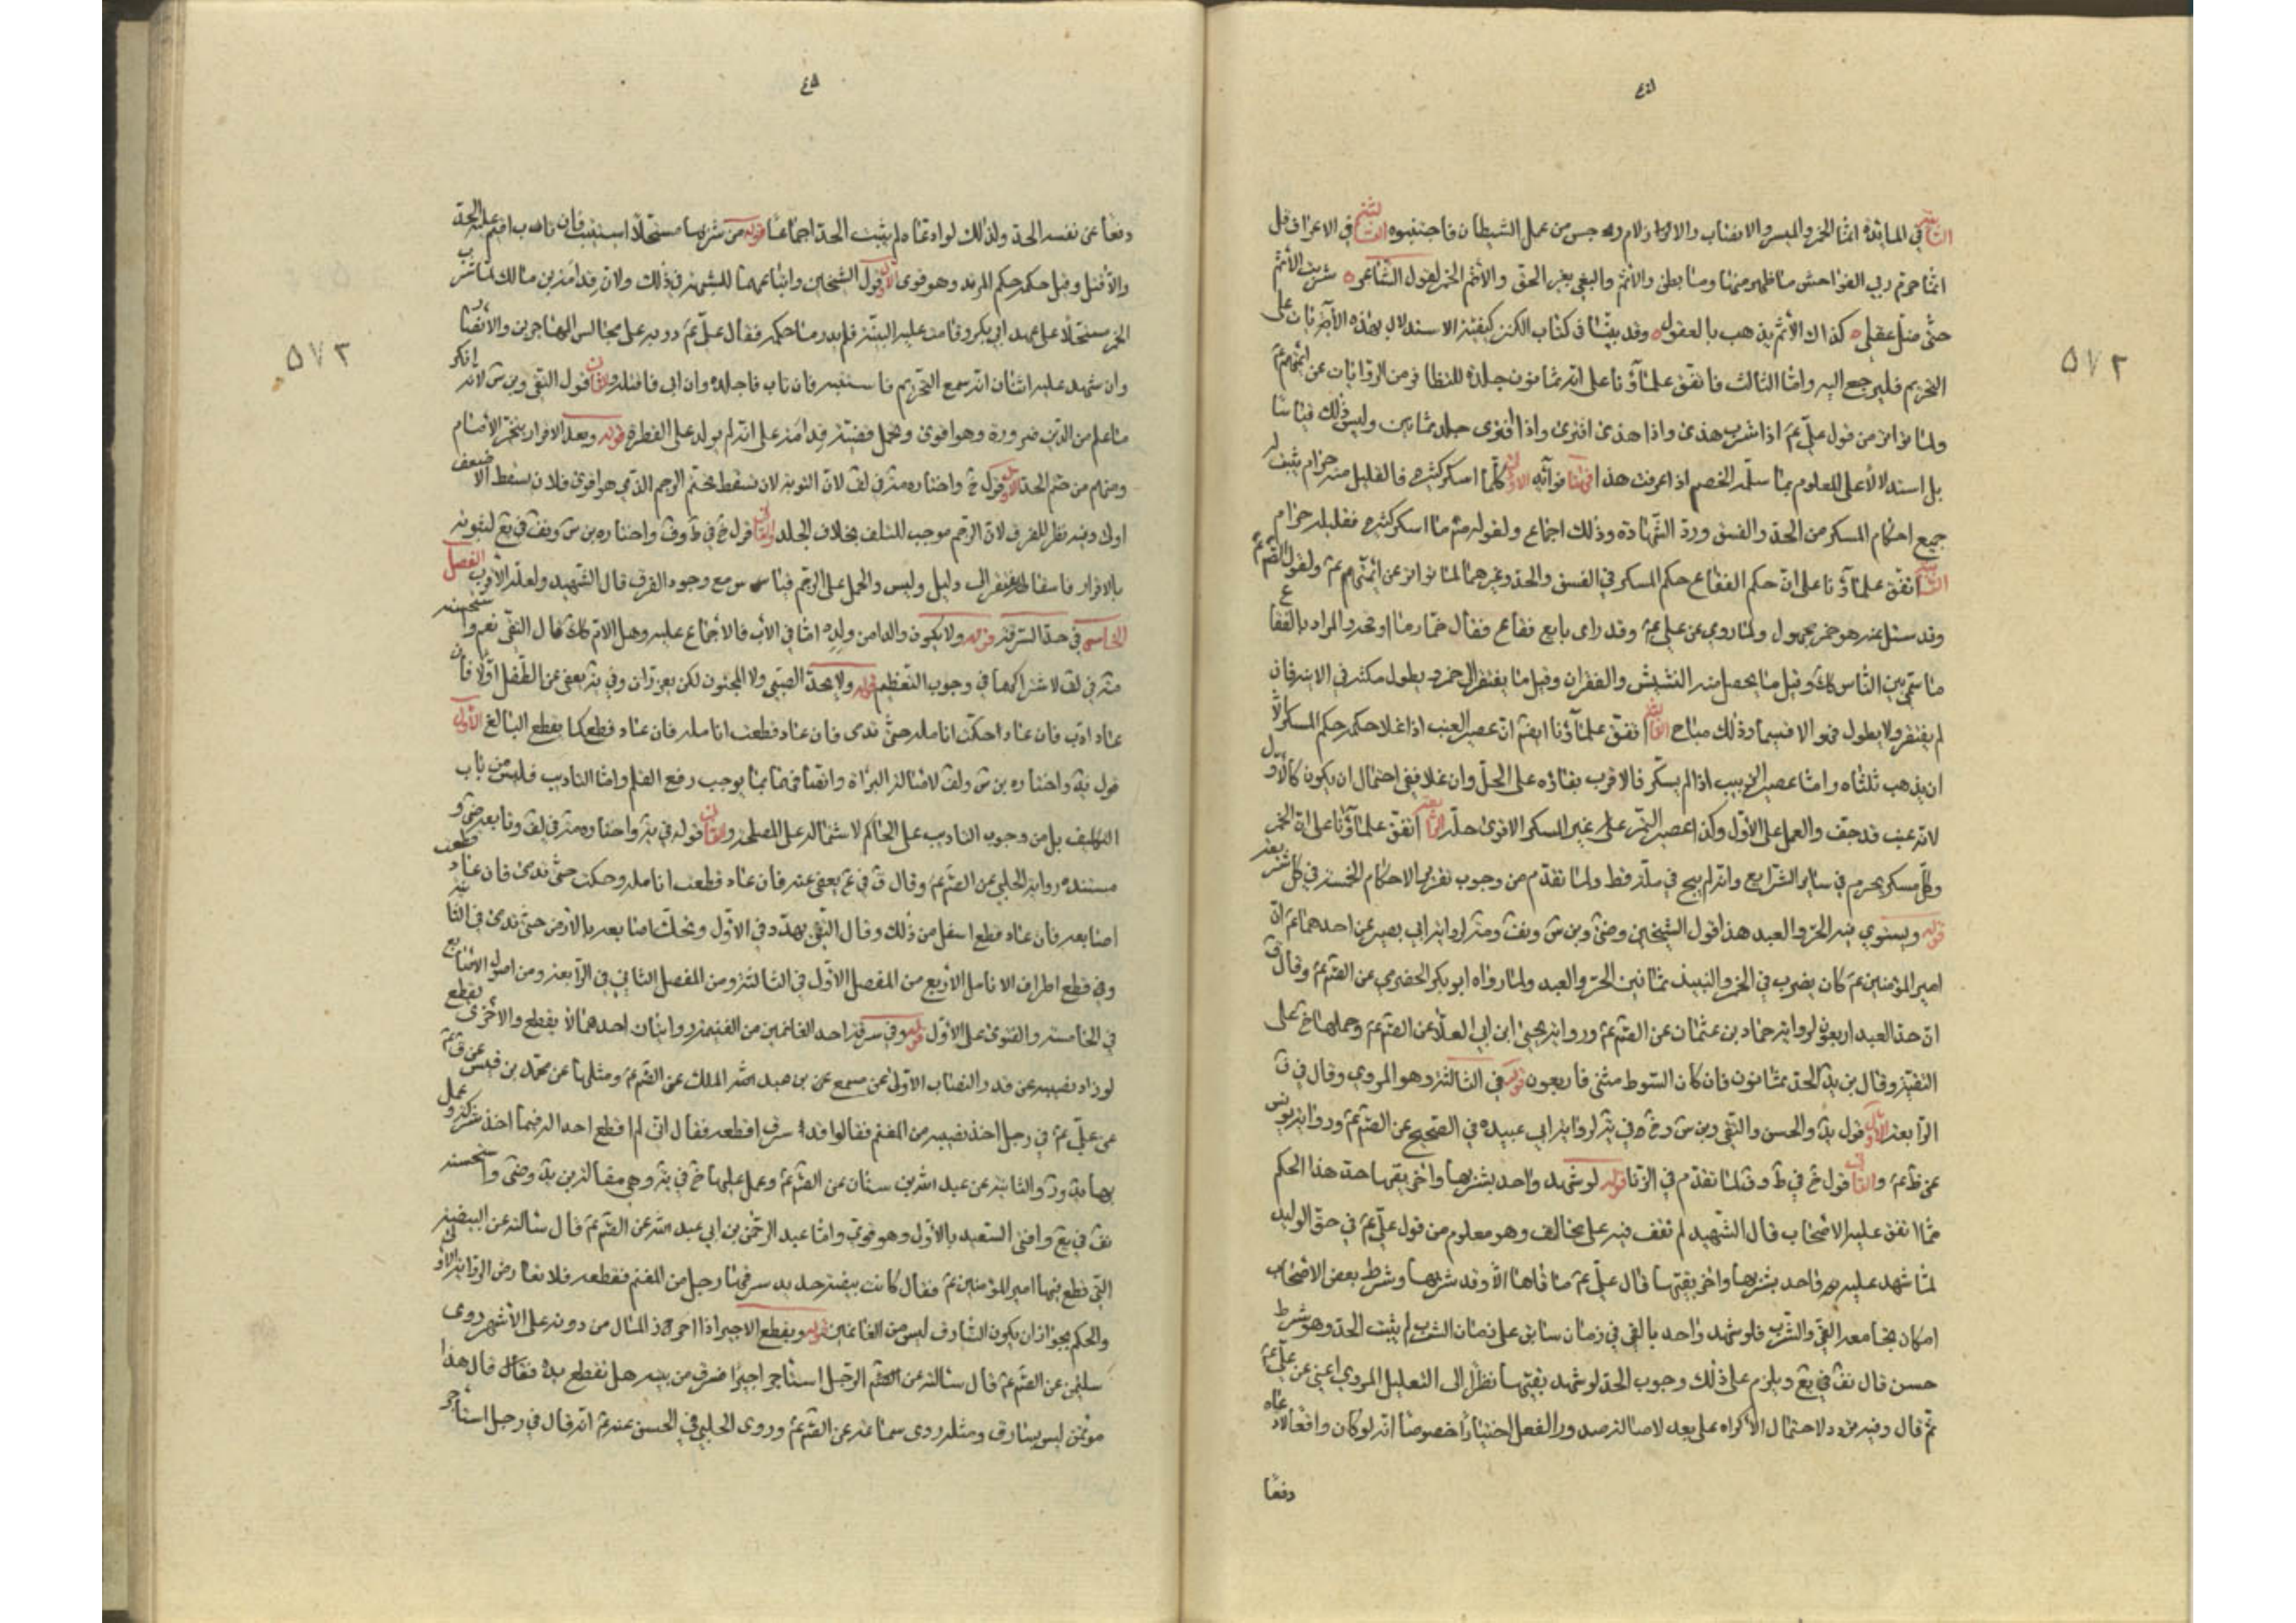 ٥٧٢
الثانية في المائدة انما الخمر والميسر والانصاب والازلام رجس من عمل الشيطان فاجتنبوه الثالثة في الاعراف قل
انما حرم ربي الفواحش ما ظهر منها وما بطن والاثم والبغي بغير الحق والاثم الخمر لقول الشاعر شربت الاثم
حتى ضل عقلي كذاك الاثم يذهب بالعقول وقد بينا في كتاب الكنز كيفية الاستدلال بهذه الآيات على
التحريم فليرجع اليه واما الثالث فاتفق علماؤنا على انه ثمانون جلدة للتظافر من الروايات عن ائمتهم ع
ولما تواتر من قول علي ع اذا شرب هذى واذا هذى افترى واذا افترى جلد ثمانين وليس ذلك قياسا
بل استدلالا على المعلوم بما سلمه الخصم اذا عرفت هذا فهنا فوائد الاولى كلما اسكر كثيره فالقليل منه حرام يثبت له
جميع احكام المسكر من الحد والفسق ورد الشهادة وذلك اجماع ولقوله ما اسكر كثيره فقليله حرام
الثانية اتفق علماؤنا على ان حكم الفقاع حكم المسكر في الفسق والحد وغيرهما لما تواتر عن ائمتهم ع ولقول الصم ع
وقد سئل عنه هو خمر مجهول ولما روي عن علي ع وقد راى بايع فقاع فقال خمار والمراد بالفقاع
ما سمي بين الناس كك وقيل ما يحصل منه النشيش والقفزان وقيل ما يقفز الى خمر ويطول مكثه في الاناء فان
لم يقفز ولا يطول فهو الا فسيما وذلك مباح الثالثة اتفق علماؤنا ايضم ان عصير العنب اذا غلا حكمه حكم المسكر الا
ان يذهب ثلثاه واما عصير الزبيب اذا لم يسكر فالاقرب بقاؤه على الحل وان غلا ففي احتمال ان يكون كالاول
لانه عنب قد جف والعمل على الاول وكذا عصير التمر على غير المسكر الاقوى حله الرابعة اتفق علماؤنا على ان الخمر
وكل مسكر محرم في ساير الشرايع وانه لم يبح في ملة قط ولما تقدم من وجوب تقرير الاحكام الخمسة في كل شريعة
قوله ويستوي فيه الحر والعبد هذا قول الشيخين وضى وبن س ويف ومثر لرواية ابي بصير عن احدهما ع ان
امير المؤمنين ع كان يضرب في الخمر والنبيذ ثمانين الحر والعبد ولما رواه ابو بكر الحضرمي عن الصم ع وقال ق
ان حد العبد اربعون لرواية حماد بن عثمان عن الصم ع ورواية يحيى ابن ابي العلا عن الصم ع وحملها خ على
التقية وقال بن يد الحد ثمانون فان كان السوط مثنى فاربعون قوله في الثالثة وهو المروي وقال في ف
الرابعة الاول قول يد والحسن والتقي وبن س وخ في ير لرواية ابي عبيده في الصحيح عن الصم ع ورواية يونس
عن ظ ع والثاني قول خ في ط وف لما تقدم في الزنا قوله لو شهد واحد بشربها واخر بقيها حد هذا الحكم
مما اتفق عليه الاصحاب قال الشهيد لم نقف فيه على مخالف وهو معلوم من قول علي ع في حق الوليد
لما شهد عليه واحد بشربها واخر بقيتها قال علي ع ما قاها الا وقد شربها وشرط بعض الاصحاب
امكان مجامعة القي والشرب فلو شهد واحد بالقي في زمان سابق على زمان الشرب لم يثبت الحد وهو شرط
حسن قال نف في يع ويلزم على ذلك وجوب الحد لو شهد بقيتها نظرا الى التعليل المروي اعني عن علي ع
ثم قال وفيه تردد لاحتمال الاكراه على بعد لاصالة صدور الفعل اختيارا خصوصا انه لو كان واقعا لادعاه
دفعا
٤٥
٥٧٣
دفعا عن نفسه الحد ولذلك لو ادعاه لم يثبت الحد اجماعا قوله من شربها مستحلا استتيب فان تاب اقيم عليه الحد
والا قتل وقيل حكمه حكم المرتد وهو قوى الاول قول الشيخين واتباعهما للشبهة في ذلك ولان قدامة بن مالك لما شرب
الخمر مستحلا على عهد ابي بكر وقامت عليه البينة فلم يدر ما حكمه فقال علي ع دوبه على مجالس المهاجرين والانصار
وان شهد عليه اثنان انه سمع التحريم فاستتبه فان تاب فاجلده وان ابى فاقتله والثاني قول التقي وبن س لانه انكر
ما علم من الدين ضرورة وهو اقوى وتحمل قضية قدامة على انه لم يولد على الفطرة قوله وبعد الاقرار يتخير الامام
ومنهم من حتم الحد الاول قول خ واختاره مثر في لف لان التوبة لان تسقط تحتم الرجم الذي هو اقوى فلان تسقط الاضعف
اولى وفيه نظر للفرق لان الرجم موجب للتلف بخلاف الجلد والثاني قول خ في ط وف واختاره بن س ونف في يع لثبوته
بالاقرار فاسقاطه يفتقر الى دليل وليس والحمل على الرجم قياس مع وجود الفرق قال الشهيد ولعله الاقرب الفصل
الخامس في حد السرقة قوله ولا يكون والدا من ولده اما في الاب فالاجماع عليه وهل الام كك قال التقي نعم واستحسنه
مثر في لف لاشتراكهما في وجوب التعظيم قوله ولا يحد الصبي ولا المجنون لكن يعزران وفي ير يعفى عن الطفل اولا فان
عاد ادب فان عاد حكت انامله حتى تدمى فان عاد قطعت انامله فان عاد قطع كما يقطع البالغ الاول
قول يد واختاره بن س ولف لاصالة البراة واتفاقهما بما يوجب رفع القلم واما التاديب فليس من باب
التكليف بل من وجوب التاديب على الحاكم لاشتماله على المصلحة والثاني قوله في ير واختاره مثر في لف وتابعه ضى و
مستنده رواية الحلبي عن الصم ع وقال ق في يع يعفى عنه فان عاد قطعت انامله وحكت حتى تدمى فان عاد قطعت
اصابعه فان عاد قطع اسفل من ذلك وقال التقي يهدد في الاول وتحك اصابعه بالارض حتى تدمى في الثانية
وفي قطع اطراف الانامل الاربع من المفصل الاول في الثالثة ومن المفصل الثاني في الرابعة ومن اصول الاصابع
في الخامسة والفتوى على الاول قوله وفي سرقة احد الغانمين من الغنيمة روايتان احدهما لا يقطع والاخرى يقطع
لو زاد نصيبه عن قدر النصاب الاولى عن مسمع عن بن عبد الملك عن الصم ع ومثلها عن محمد بن قيس عن ق ع
عن علي ع في رجل اخذ نصيبه من المغنم فقالوا قد سرق اقطعه فقال اني لم اقطع احدا له فيما اخذ شركة وعمل
بها يد ور والثانية عن عبد الله بن سنان عن الصم ع وعمل عليها خ في ير وهي مقالة بن يد وضى واستحسنه
نف في يع وافتى السعيد بالاول وهو قوي واما عبد الرحمن بن ابي عبد الله عن الصم ع قال سالته عن البيضة
التي قطع فيها امير المؤمنين ع فقال كانت بيضة حديد سرقها رجل من المغنم فقطعه فلا تعارض الرواية الاولى
والحكم بجواز ان يكون السارق ليس من الغانمين قوله ويقطع الاجير اذا احرز المال من دونه على الاشهر روى
سليمن عن الصم ع قال سالته عن الرجل استاجر اجيرا فسرق من بيته هل تقطع يده فقال هذا
مؤتمن ليس بسارق ومثله روى سماعة عن الصم ع وروى الحلبي في الحسن عنه ع انه قال في رجل استاجر